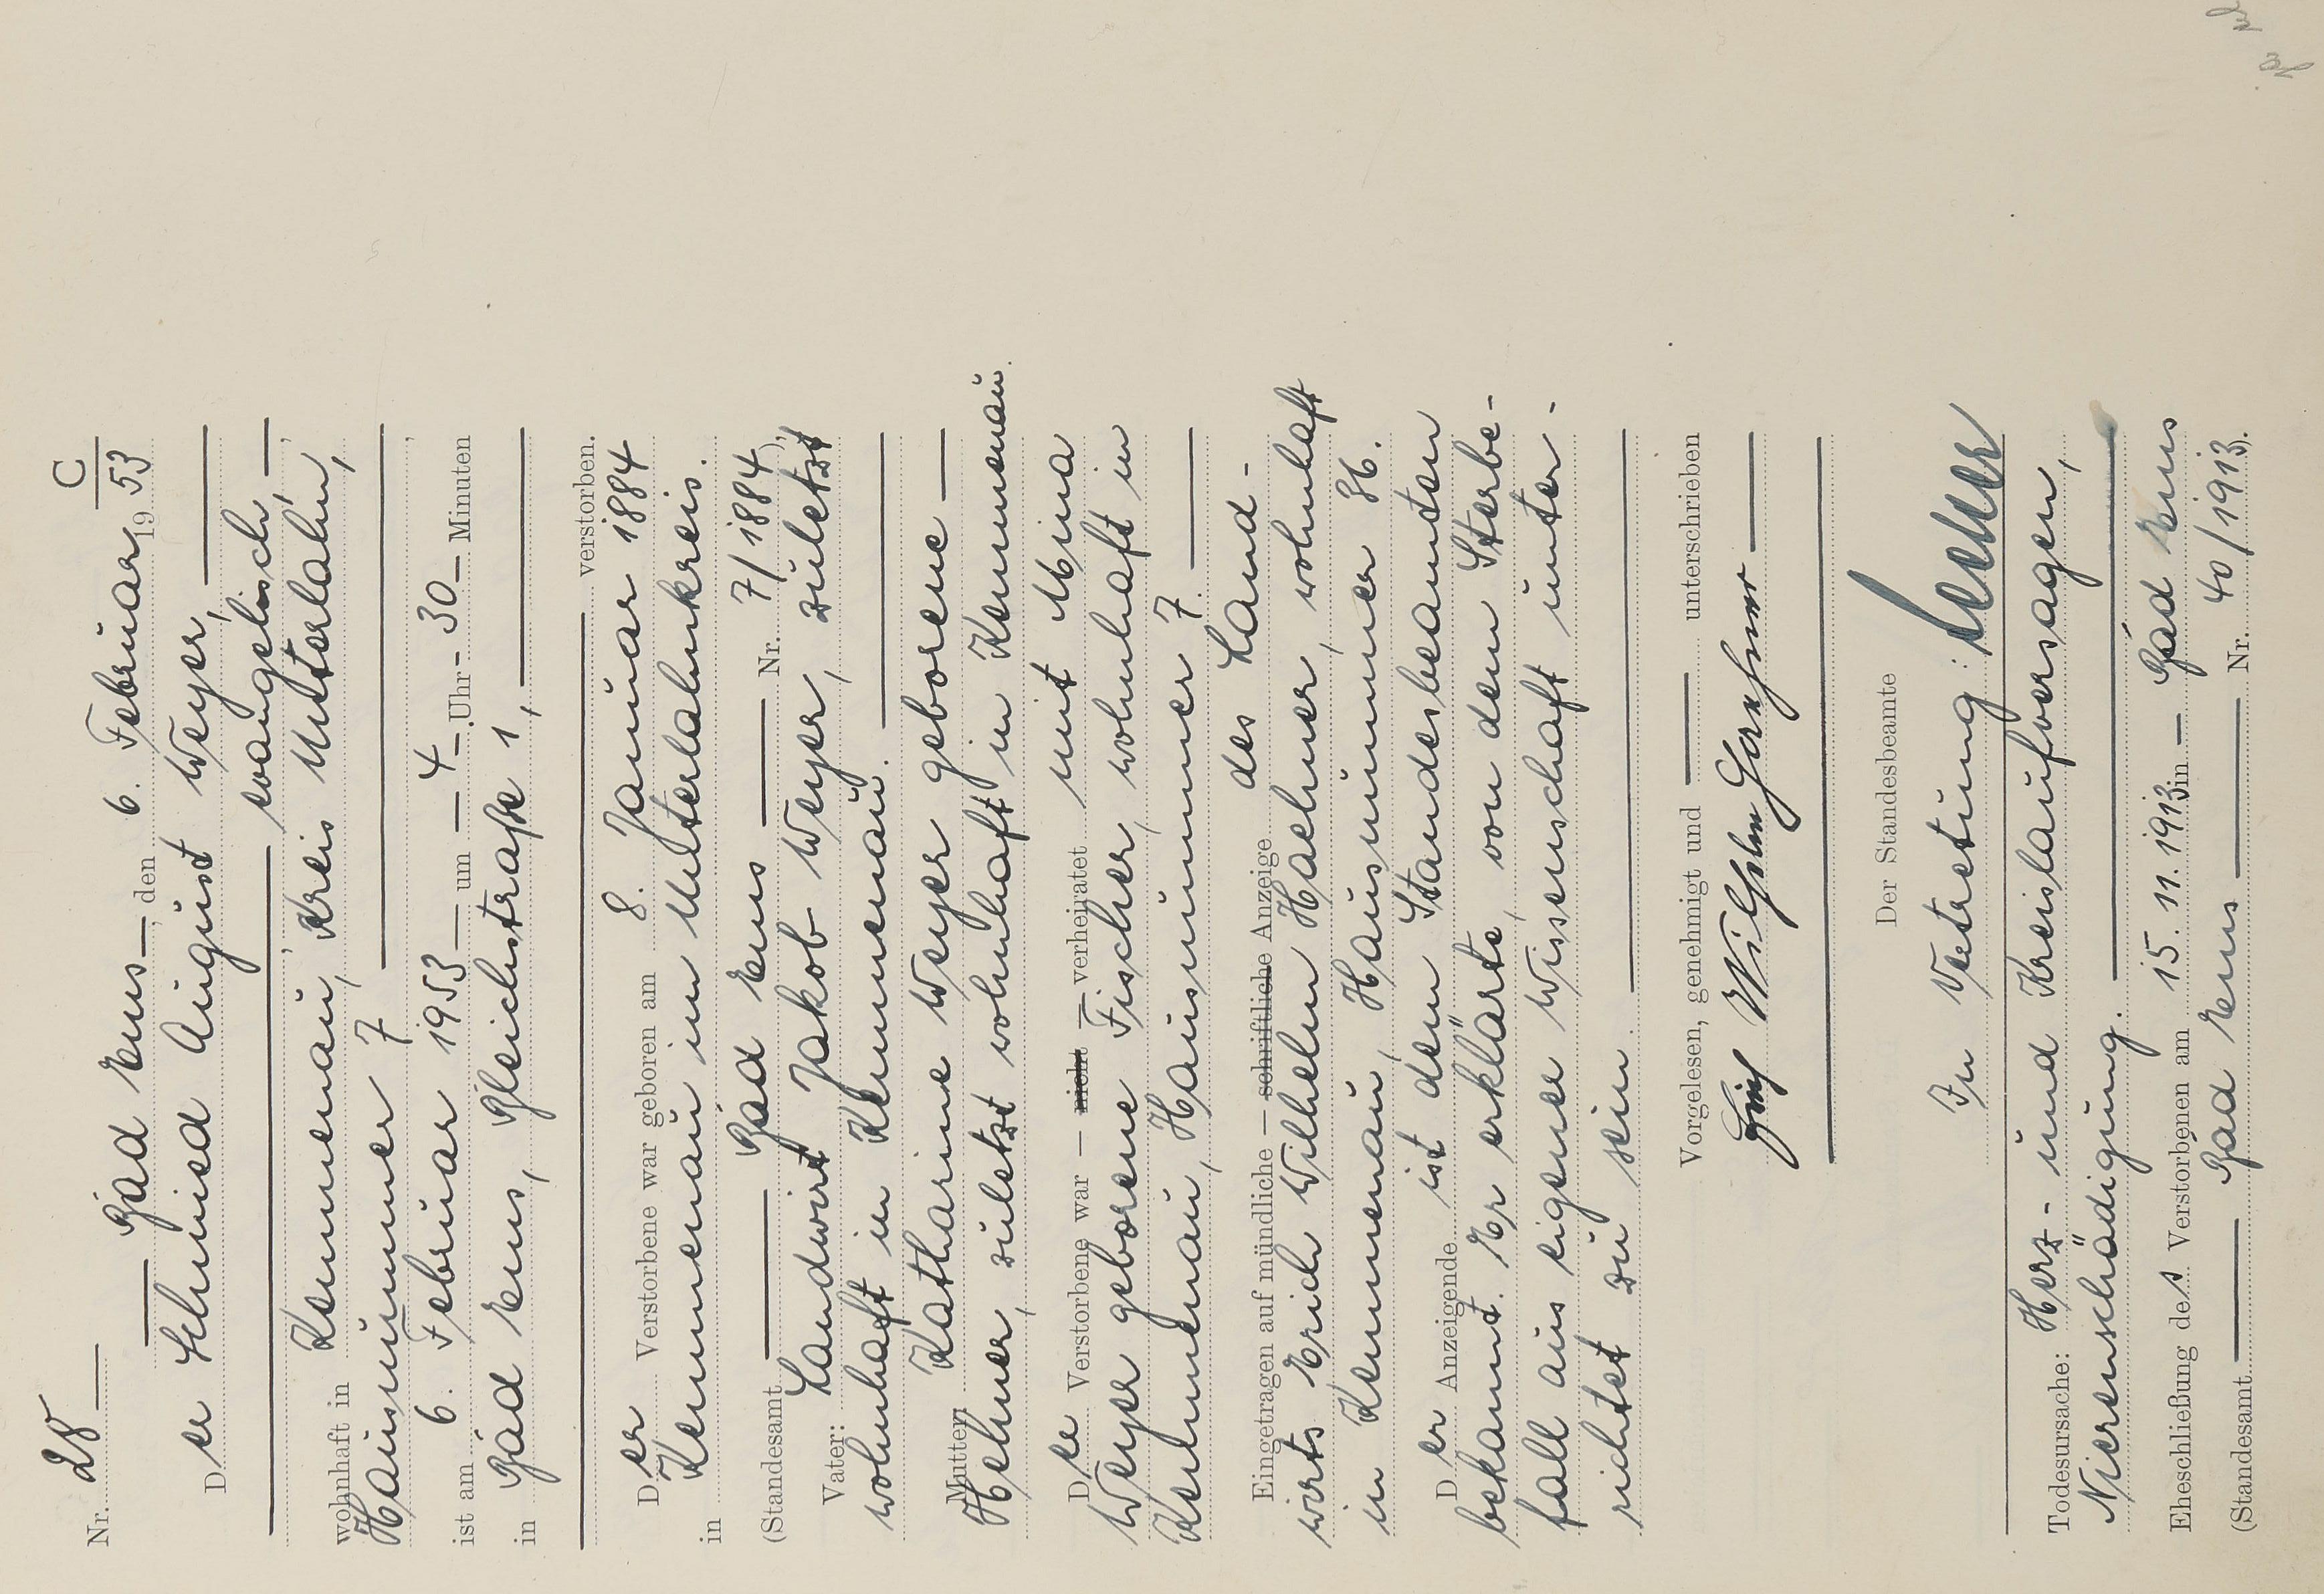 C
Nr. 28
Bad Ems, den 6. Februar 1953
Der Schmied August Weyer,
evangelisch,
wohnhaft in Kemmenau, Kreis Unterlahn,
Hausnummer 7
ist am 6. Februar 1953 um 4 Uhr 30 Minuten
in Bad Ems, Gleichstraße 1,
verstorben.
Der Verstorbene war geboren am 8. Januar 1884
in Kemmenau im Unterlahnkreis.
(Standesamt Bad Ems Nr. 7/1884)
Vater: Landwirt Jakob Weyer, zuletzt
wohnhaft in Kemmenau.
Mutter: Katharine Weyer geborene
Hehner, zuletzt wohnhaft in Kemmenau.
Der Verstorbene war — nicht — verheiratet mit Mina
Weyer geborene Fischer, wohnhaft in
Kemmenau, Hausnummer 7.
Eingetragen auf mündliche — schriftliche Anzeige des Land-
wirts Erich Wilhelm Haehner, wohnhaft
in Kemmenau, Hausnummer 86.
Der Anzeigende ist dem Standesbeamten
bekannt. Er erklärte, von dem Sterbe-
fall aus eigener Wissenschaft unter-
richtet zu sein.
Vorgelesen, genehmigt und unterschrieben
Erich Wilhelm Haehner
Der Standesbeamte
In Vertretung:
Todesursache: Herz- und Kreislaufversagen,
Nierenschädigung.
Eheschließung des Verstorbenen am 15. 11. 1913 in Bad Ems
(Standesamt Bad Ems Nr. 40/1913).